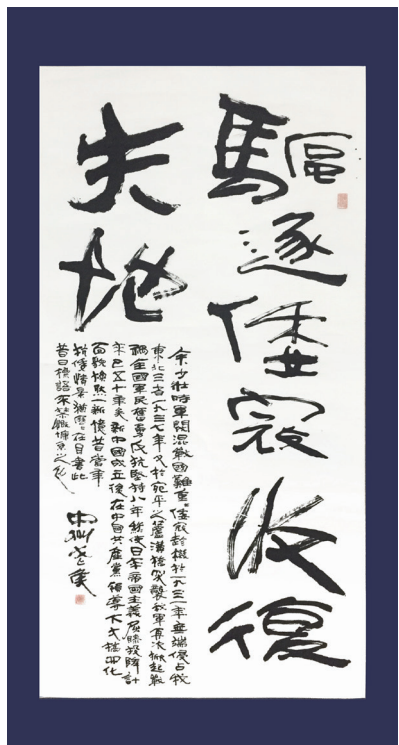 驅逐倭寇收復
失地
余少壯時軍閥混戰國難重重倭寇趁機於一九三一年無端侵占我
東北三省一九三七年又於宛平之蘆溝橋突擊我軍再次掀起戰
禍全國軍民奮勇反抗堅持八年終使日本帝國主義屈膝投降計
來已五十年矣新中國成立後在中國共產黨領導下大搞四化
面貌煥然一新憶昔當年
抗倭情景猶歷歷在目書此
昔日標語不禁慨慷系之矣